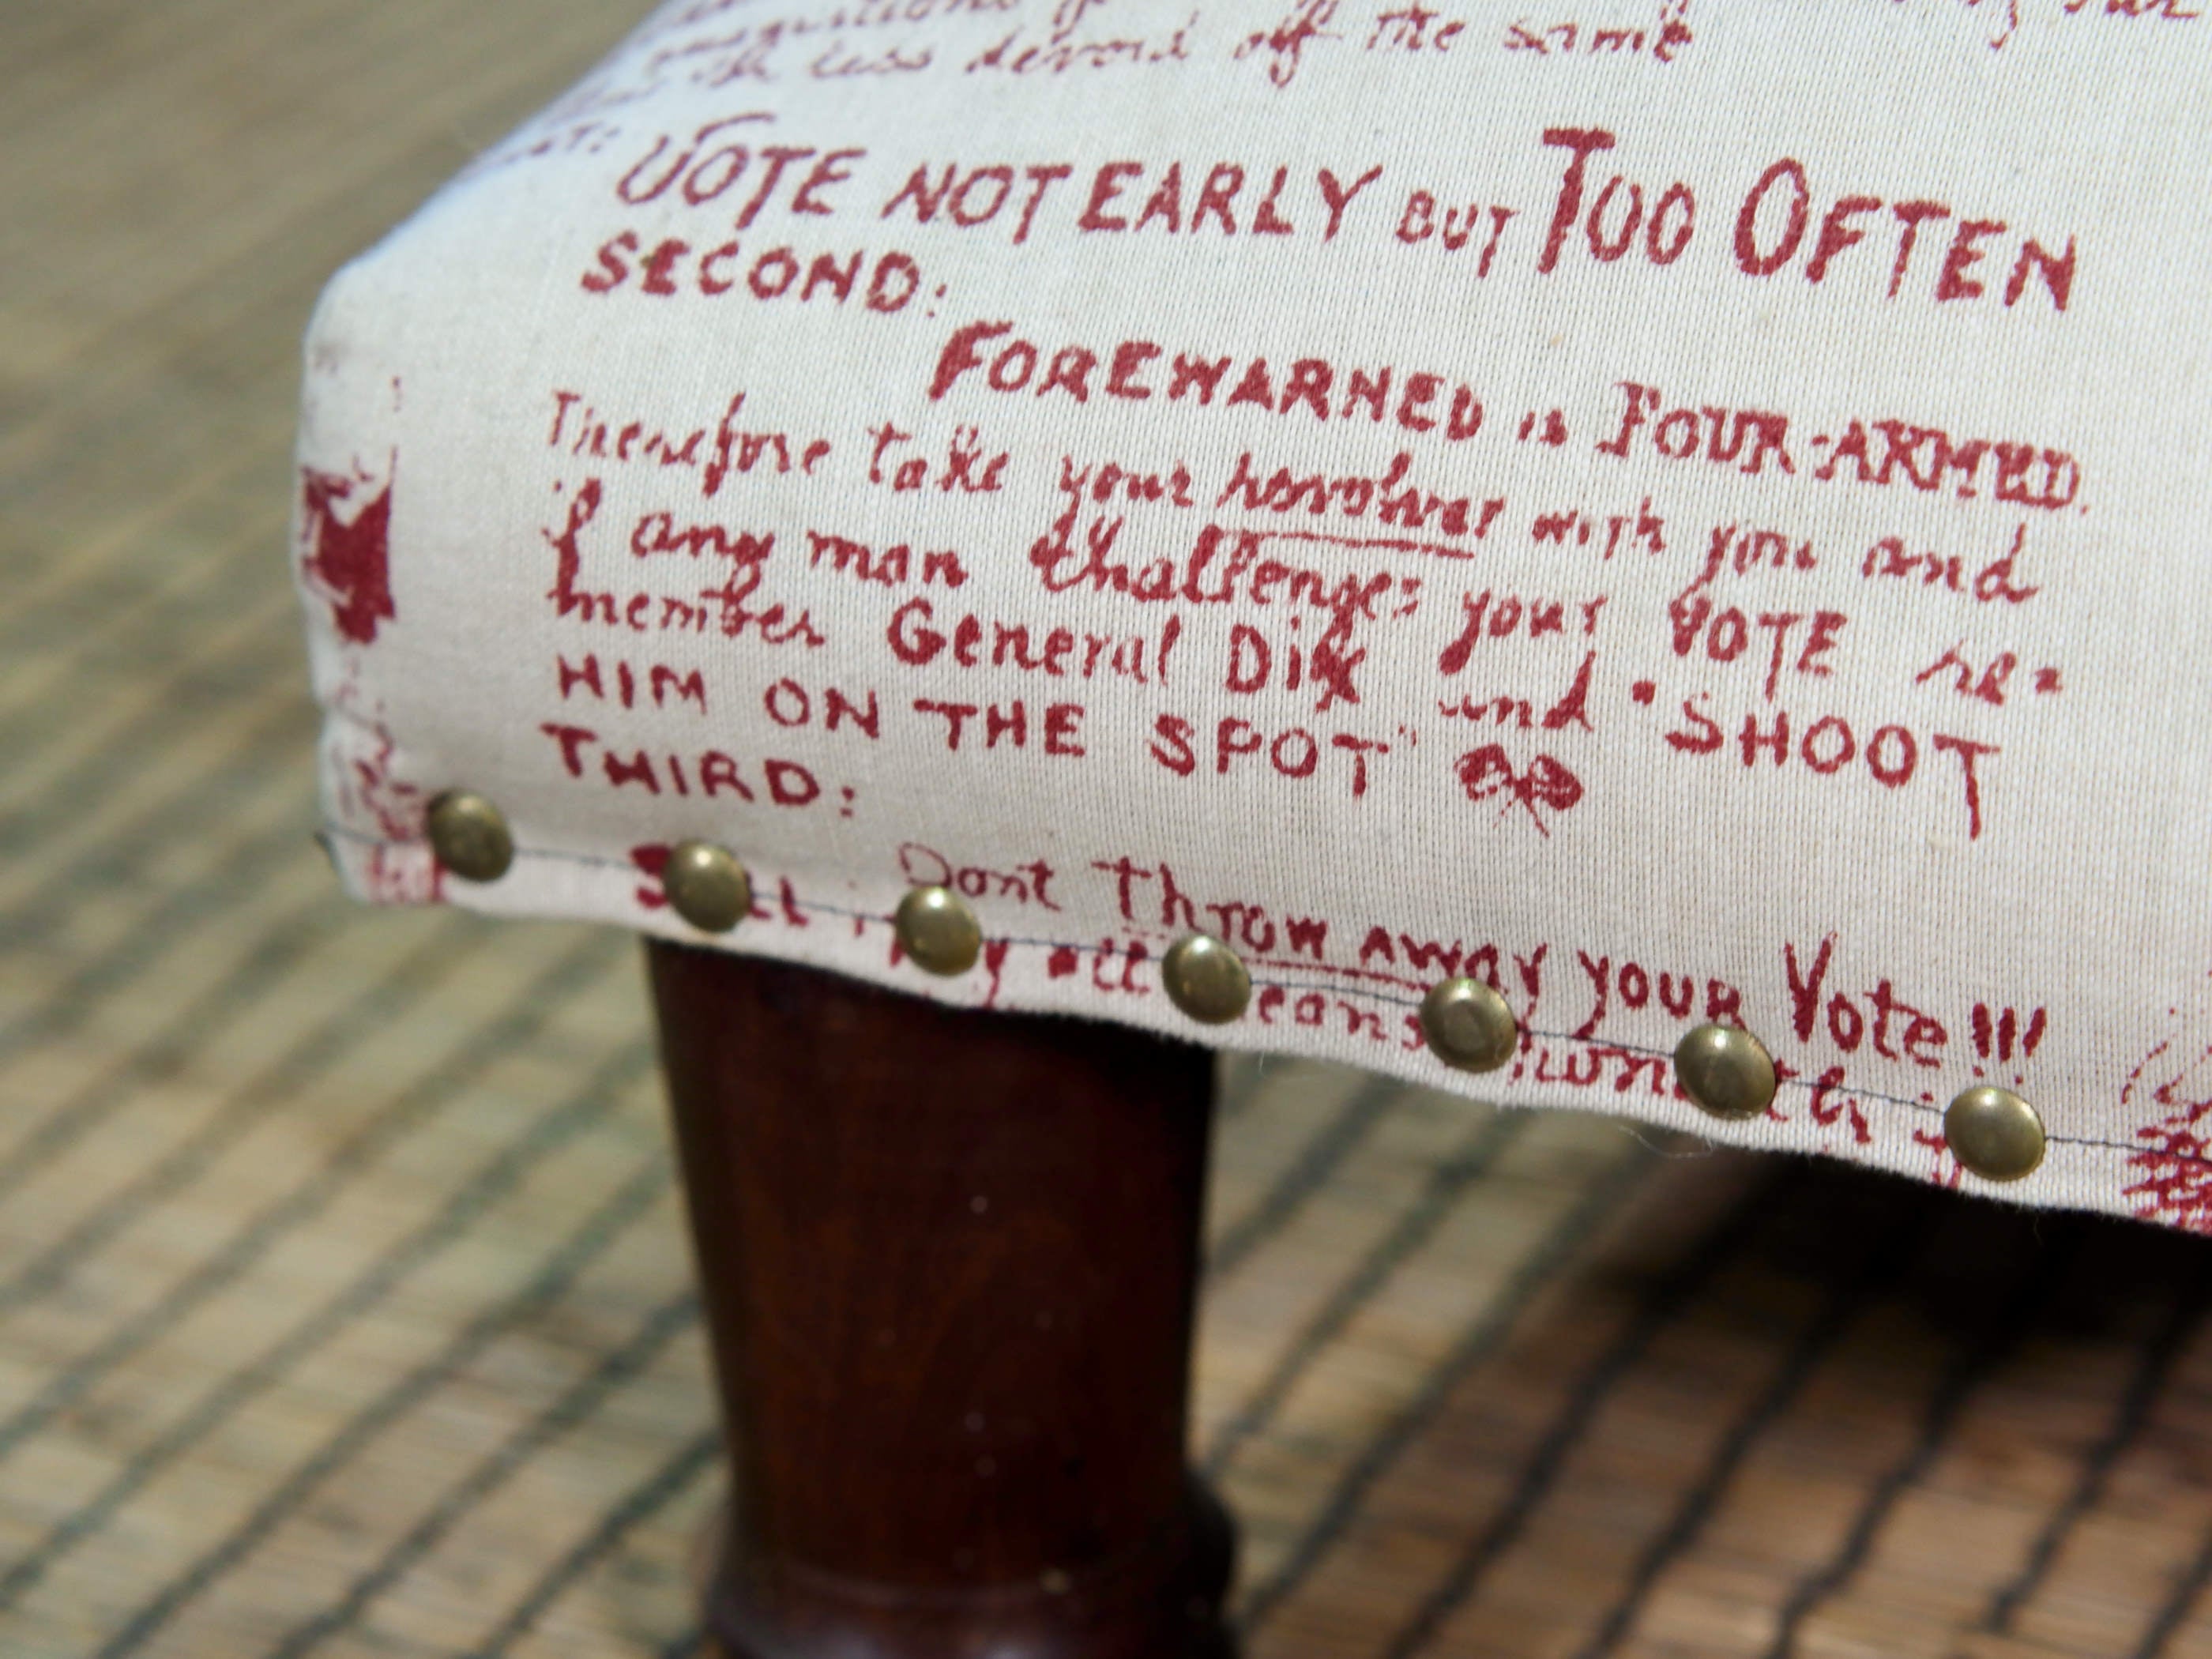 the less devoid off the same
VOTE NOT EARLY BUT TOO OFTEN
SECOND:
FOREWARNED is FOUR-ARMED.
Therefore take your revolver with you and
if any man challenges your VOTE re-
member General Dix and "SHOOT
HIM ON THE SPOT"
THIRD:
Dont Throw AWAY YOUR Vote!!!